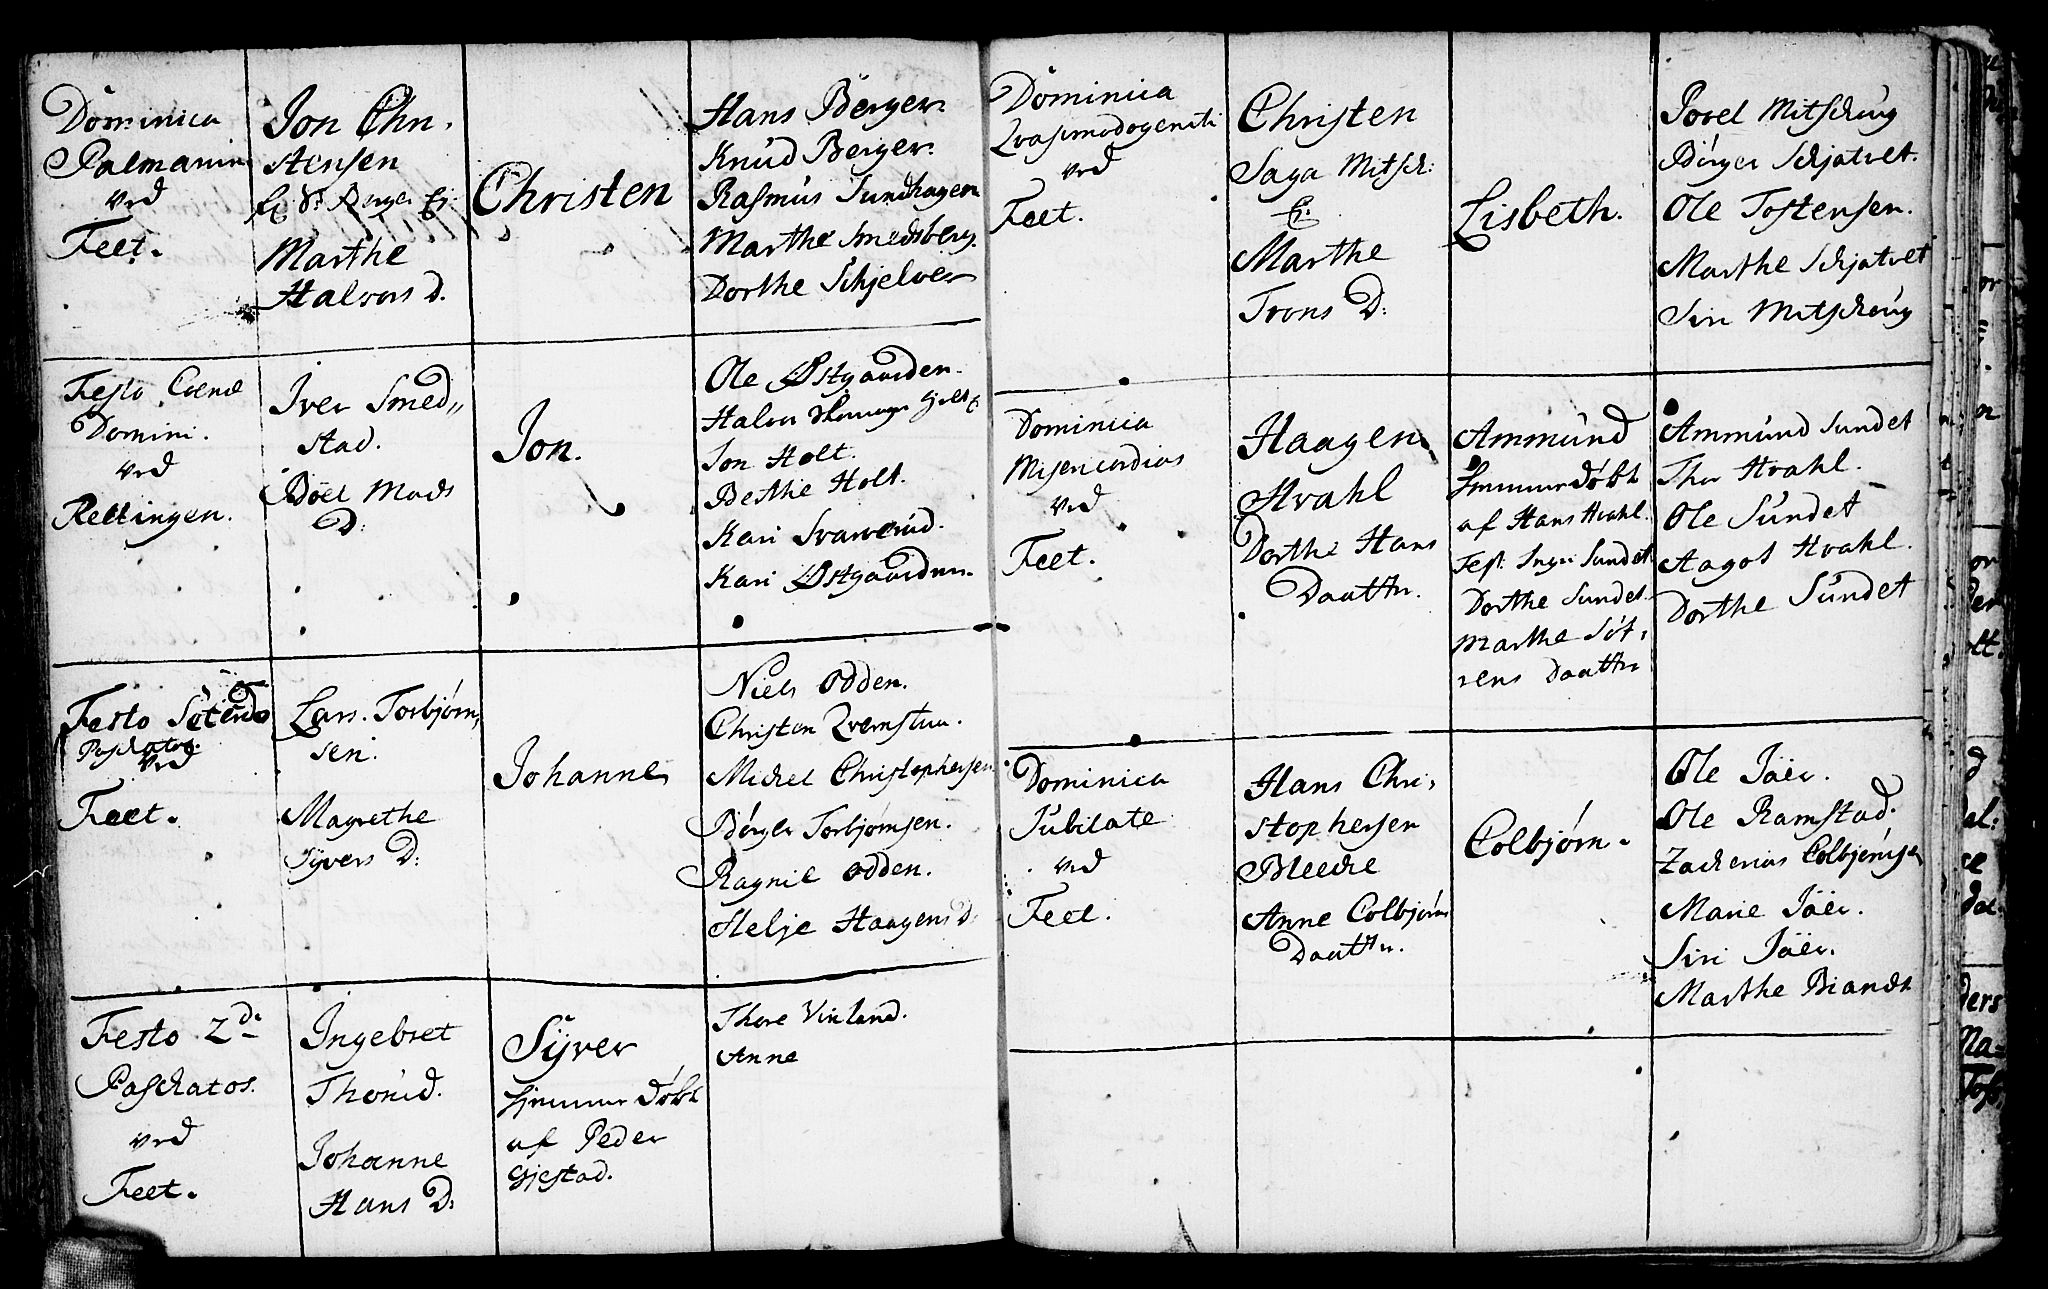 Dominica
Palmarum
ved
Feet.
Jon Chri-
stensen
Marthe
Halvors D.
Christen
Hans Berger.
Knud Berger.
Rasmus Sundhagen
Marthe Smedsberg.
Dorthe Schjelver
Festo Coenæ
Domini.
ved
Rellingen.
Iver Smed,,
stad.
Boel Mads
D:
Jon.
Ole Østgaarden.
Halvor
Jon Holt.
Berthe Holt.
Kari Svarverud.
Kari Østgaarden.
Festo
Paschatos.
ved
Feet.
Lars Torbjørn,
sen.
Magrethe
Syvers D:
Johanne
Niels Odden.
Christen Qvernstuu.
Michel Christophersen
Børger Torbjørnsen.
Ragnil Odden.
Helje Haagens D:
Festo 2di
Paschatos.
ved
Feet.
Ingebret
Thorud.
Johanne
Hans D:
Syver
hjemme Døbt
af Peder
Gjestad.
Thore Vinland.
Anne
Dominica
Qvasimodogeniti
ved
Feet.
Christen
Saga Mitsch:
E:
Marthe
Trons D:
Lisbeth.
Povel Mitscheug
Børger Schjatvet.
Ole Tostensen.
Marthe Schjatvet
Siri Mitscheug
Dominica
Misericordias
ved
Feet.
Haagen
Hvahl
Dorthe Hans
Daatter.
Ammund
hjemme Døbt
af Hans Hvahl.
Test: Inger Sundet
Dorthe Sundet.
Marthe Sø-
rens Daatter
Ammund Sundet
Thor Hvahl.
Ole Sundet
Aagot Hvahl.
Dorthe Sundet
Dominica
Jubilate
ved
Feet.
Hans Chri-
stophersen
Bleeche
Anne Colbjørns
Daatter.
Colbjørn.
Ole Jäer.
Ole Ramstad.
Zacherias Colbjørnsen
Marie Jäer.
Siri Jäer.
Marthe Brandt